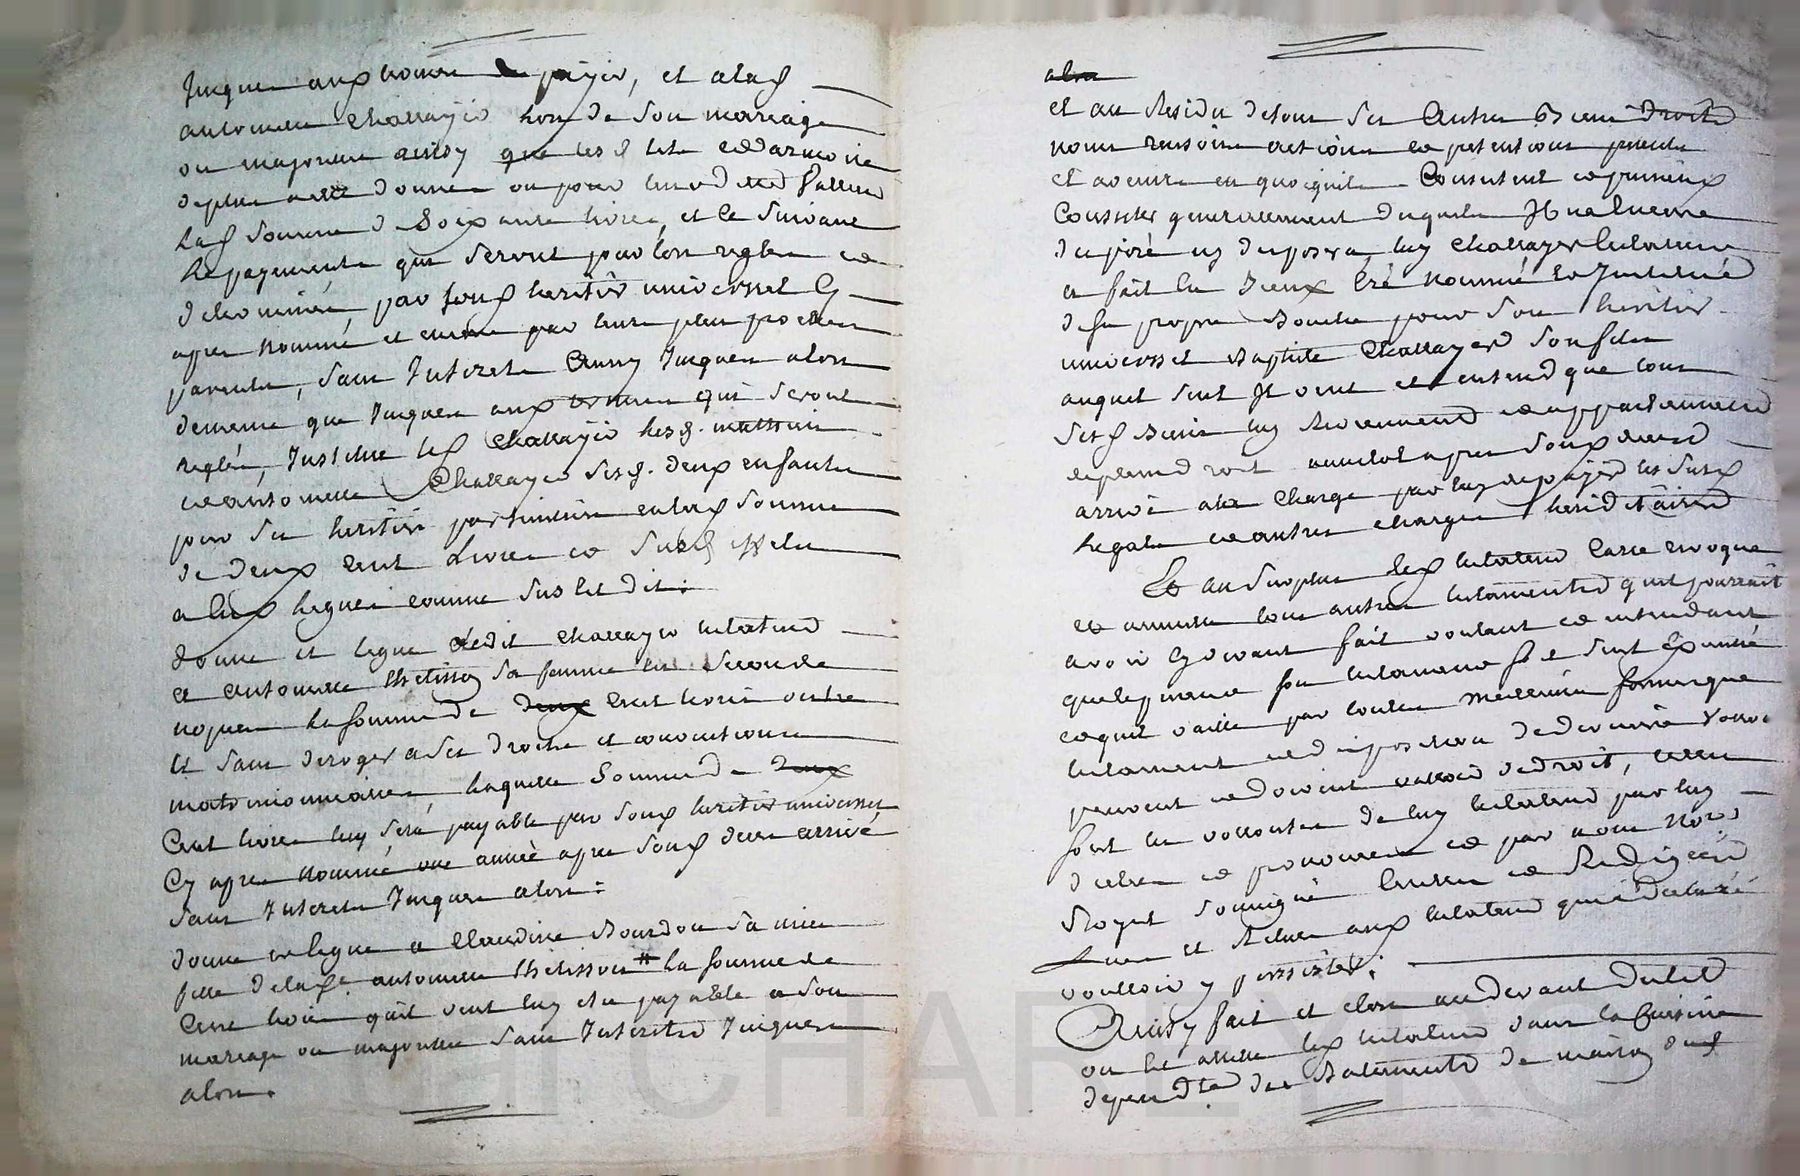 Jusques aux termes a payer, et alad
antoinette Chattayer lors de son mariage
ou majorité ainsy que lesd lits et armoire
de plus a donner ou pour luy
lad somme de Soixante livres, et le suivant
les payements qui seront pour lors regles et
determinés, par sond heritier universel Cy
apres nommé et encore par leurs plus proches
parents, sans Interets Ainsy Jusques alors
dememe que Jusques aux termes qui seront
reglés, Institue led Chattayer lesd.
et antoinette Chattayer sesd. deux enfants
pour ses heritiers particuliers en lad somme
de deux cent Livres et susd effets
a eux legués comme sus est dit.
donne et legue ledit Chattayer testateur
a antoinette Thelisson sa femme en secondes
nopces la somme de deux Cent livres outre
et sans deroger a ses droits et conventions
matrimoniaux, laquelle Somme de deux
Cent livres luy sera payable par sond heritier universel
Cy apres nommé une année apres sond deces arrivé
sans Interets Jusques alors.
donne et legue a Claudine Bourdon sa niece
fille de lad antoinette Thelisson la somme de
Cent livres qu'il veut luy etre payable a son
mariage ou majorité sans Interets Jusques
alors.
alors
et au Residu de tous ses Autres Biens droits
noms raisons actions et petentions presents
et avenir en quoiqu'ils Consistent et puissent
Consister generalement duquels Il na luy meme
disposé ny disposera, luy Chattayer testateur
a fait Cree nommé et Institué
de sa propre Bouche pour son heritier
universel Baptiste Chattayer son fils
auquel seul Il veut et entend que tous
sesd Biens luy Reviennent et appartiennent
de plein droit aussitot apres sond deces
arrivé ala Charge par luy de payer les susd
legats et autres charges hereditaires
Et au surplus led testateur Casse revoque
et annulle tous autres testaments quil pourrait
avoir Cy devant fait voulant et entendant
que le present son testament soit seul Executé
et quil vaille par toutes meilleures formes que
testament et disposition de derniere Volonté
peuvent et doivent valloir de droit, telles
sont les vollontés de luy testateur par luy
dictées et prononcées et par nous No.re
Royal soussigné Ecrites et Redigées
Lues et Relues aux testateur qui a declaré
voulloir y persister.
Ainsy fait et clos au devant du lit
ou est alitté led testateur dans la Cuisine
depend.te des Batiments de maison dud